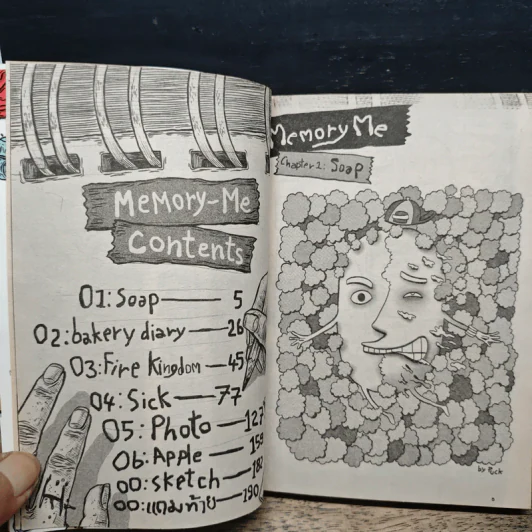 Memory-Me
Contents
01: Soap 5
02: bakery diary 26
03: Fire Kingdom 45
04: Sick 77
05: Photo 127
06: Apple 159
00: Sketch 182
00: แถมท้าย 190
Memory Me
Chapter 1: Soap
by Puck